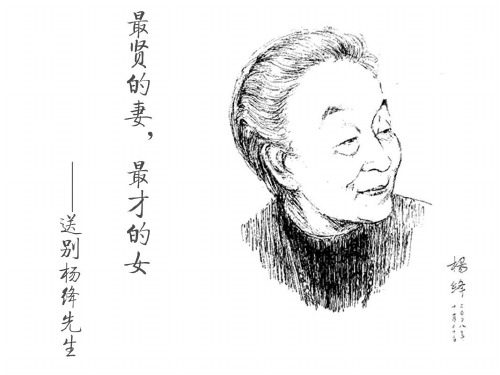 最贤的妻，最才的女
——送别杨绛先生
楊绛